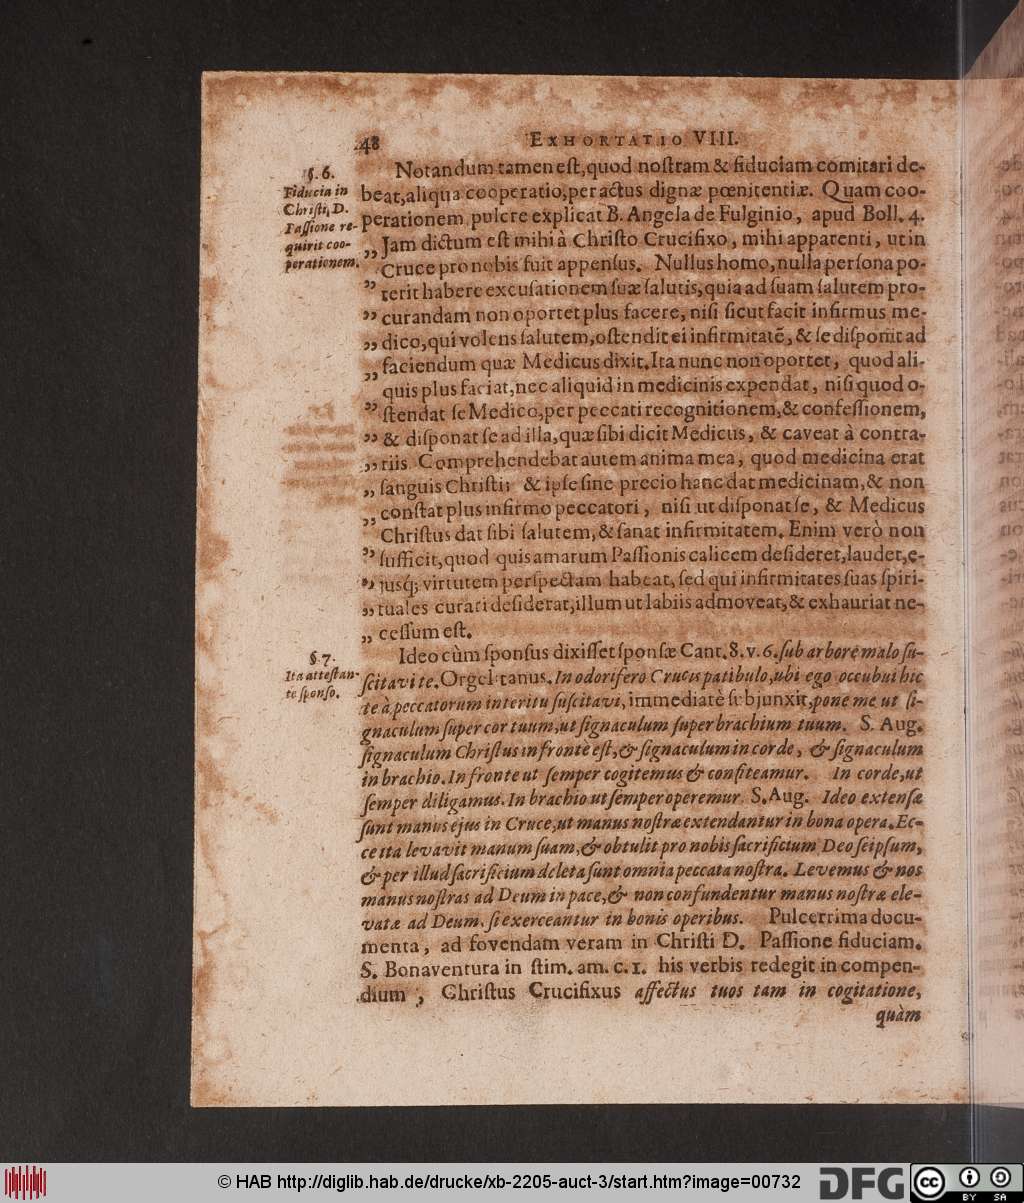 48 EXHORTATIO VIII.
§. 6.
Fiducia in
Christi, D.
Passione re-
quirit coo-
perationem.
Notandum tamen est, quod nostram & fiduciam comitari de-
beat, aliqua cooperatio, per actus dignæ pœnitentiæ. Quam coo-
perationem pulcre explicat B. Angela de Fulginio, apud Boll. 4.
„ Jam dictum est mihi à Christo Crucifixo, mihi apparenti, ut in
Cruce pro nobis fuit appensus. Nullus homo, nulla persona po-
„ terit habere excusationem suæ salutis, quia ad suam salutem pro-
„ curandam non oportet plus facere, nisi sicut facit infirmus me-
„ dico, qui volens salutem, ostendit ei infirmitatẽ, & se disponit ad
„ faciendum quæ Medicus dixit. Ita nunc non oportet, quod ali-
quis plus faciat, nec aliquid in medicinis expendat, nisi quod o-
„ stendat se Medico, per peccati recognitionem, & confessionem,
„ & disponat se ad illa, quæ sibi dicit Medicus, & caveat à contra-
„ riis. Comprehendebat autem anima mea, quod medicina erat
„ sanguis Christi; & ipse sine precio hanc dat medicinam, & non
„ constat plus infirmo peccatori, nisi ut disponat se, & Medicus
Christus dat sibi salutem, & sanat infirmitatem. Enim verò non
„ sufficit, quod quis amarum Passionis calicem desideret, laudet, e-
„ jusq́; virtutem perspectam habeat, sed qui infirmitates suas spiri-
„ tuales curari desiderat, illum ut labiis admoveat, & exhauriat ne-
„ cessum est.
§. 7.
Ita attestan-
te sponso.
Ideo cùm sponsus dixisset sponsæ Cant. 8. v. 6. sub arbore malo su-
scitavi te. Orgelitanus. In odorifero Crucis patibulo, ubi ego occubui hic
te à peccatorum interitu suscitavi, immediatè subjunxit, pone me ut si-
gnaculum super cor tuum, ut signaculum super brachium tuum. S. Aug.
signaculum Christus in fronte est, & signaculum in corde, & signaculum
in brachio. In fronte ut semper cogitemus & confiteamur. In corde, ut
semper diligamus. In brachio ut semper operemur. S. Aug. Ideo extensæ
sunt manus ejus in Cruce, ut manus nostræ extendantur in bona opera. Ec-
ce ita levavit manum suam, & obtulit pro nobis sacrificium Deo seipsum,
& per illud sacrificium deleta sunt omnia peccata nostra. Levemus & nos
manus nostras ad Deum in pace, & non confundentur manus nostræ ele-
vatæ ad Deum. si exerceantur in bonis operibus. Pulcerrima docu-
menta, ad fovendam veram in Christi D. Passione fiduciam.
S. Bonaventura in stim. am. c. 1. his verbis redegit in compen-
dium, Christus Crucifixus affectus tuos tam in cogitatione,
quàm
© HAB http://diglib.hab.de/drucke/xb-2205-auct-3/start.htm?image=00732
DFG
cc
BY SA